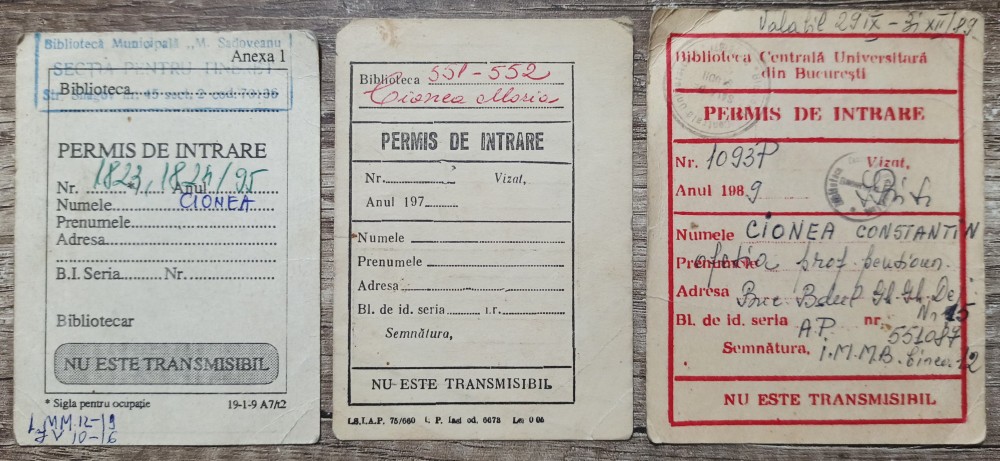 Biblioteca Municipală „M. Sadoveanu
SECȚIA PENTRU TINERET
Str. nr. 45 sect. 2 cod. 70136
Anexa 1
Biblioteca
PERMIS DE INTRARE
Nr. 1823, 1824/95 *) Anul
Numele CIONEA
Prenumele
Adresa
B.I. Seria Nr.
Bibliotecar
NU ESTE TRANSMISIBIL
* Sigla pentru ocupație 19-1-9 A7/t2
L MM 12-19
J V 10-16
Biblioteca 551-552
Cionea Maria
PERMIS DE INTRARE
Nr. Vizat,
Anul 197
Numele
Prenumele
Adresa
Bl. de id. seria nr.
Semnătura,
NU ESTE TRANSMISIBIL
I.S.I.A.P. 75/660 I. P. Iași od. 6678 Lei 0 06
Valabil 29 IX - 31 XII/89
Biblioteca Centrală Universitară
din București
PERMIS DE INTRARE
Nr. 1093P Vizat,
Anul 1989
Numele CIONEA CONSTANTIN
Prenumele prof. pension.
Adresa Buc. Bdul Gh. Gh. Dej
Nr 15
Bl. de id. seria A.P. nr. 551087
Semnătura, I.M.M.B. 12
NU ESTE TRANSMISIBIL